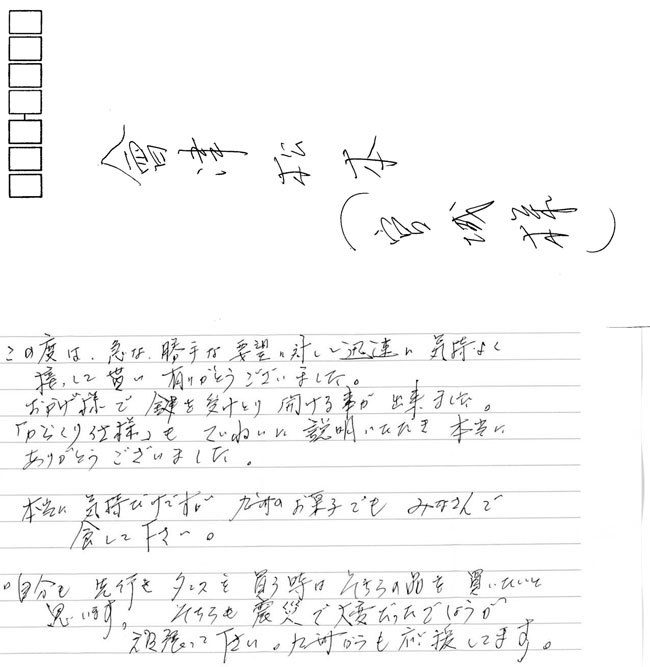 會津松本
(宮城様)
この度は、急な、勝手な要望に対し迅速に気持よく
接して貰い有りがとうございました。
おかげ様で鍵を受けとり開ける事が出来ました。
「からくり仕様」もていねいに説明いただき本当に
ありがとうございました。
本当に気持だけですが九州のお菓子でもみなさんで
食して下さい。
自分も先行きタンスを買う時はそちらの品を買いたいと
思います。そちらも震災で大変だったでしょうが
頑張って下さい。九州からも応援してます。